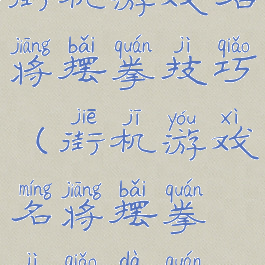 街机游戏名
jiāng bǎi quán jì qiǎo
将摆拳技巧
jiē jī yóu xì
（街机游戏
míng jiāng bǎi quán
名将摆拳
jì qiǎo dà quán